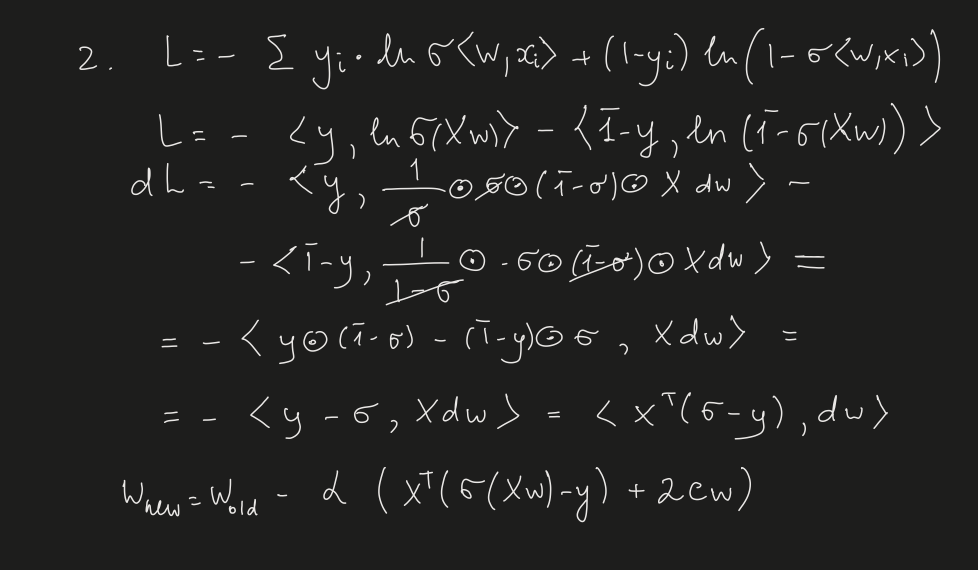 2. L = - Σ yᵢ · ln σ⟨w, xᵢ⟩ + (1-yᵢ) ln (1 - σ⟨w, xᵢ⟩)
L = - ⟨y, ln σ(Xw)⟩ - ⟨1̄-y, ln (1̄-σ(Xw))⟩
dL = - ⟨y, 1/σ ⊙ σ ⊙ (1̄-σ) ⊙ X dw⟩ -
- ⟨1̄-y, 1/(1-σ) ⊙ -σ ⊙ (1̄-σ) ⊙ Xdw⟩ =
= - ⟨y ⊙ (1̄-σ) - (1̄-y) ⊙ σ, Xdw⟩ =
= - ⟨y - σ, Xdw⟩ = ⟨Xᵀ(σ-y), dw⟩
w_new = w_old - α (Xᵀ(σ(Xw)-y) + 2cw)